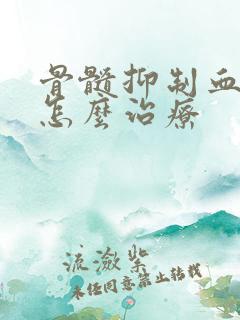 骨髓抑制血
怎麽治療
流潋紫
未经同意禁止转载